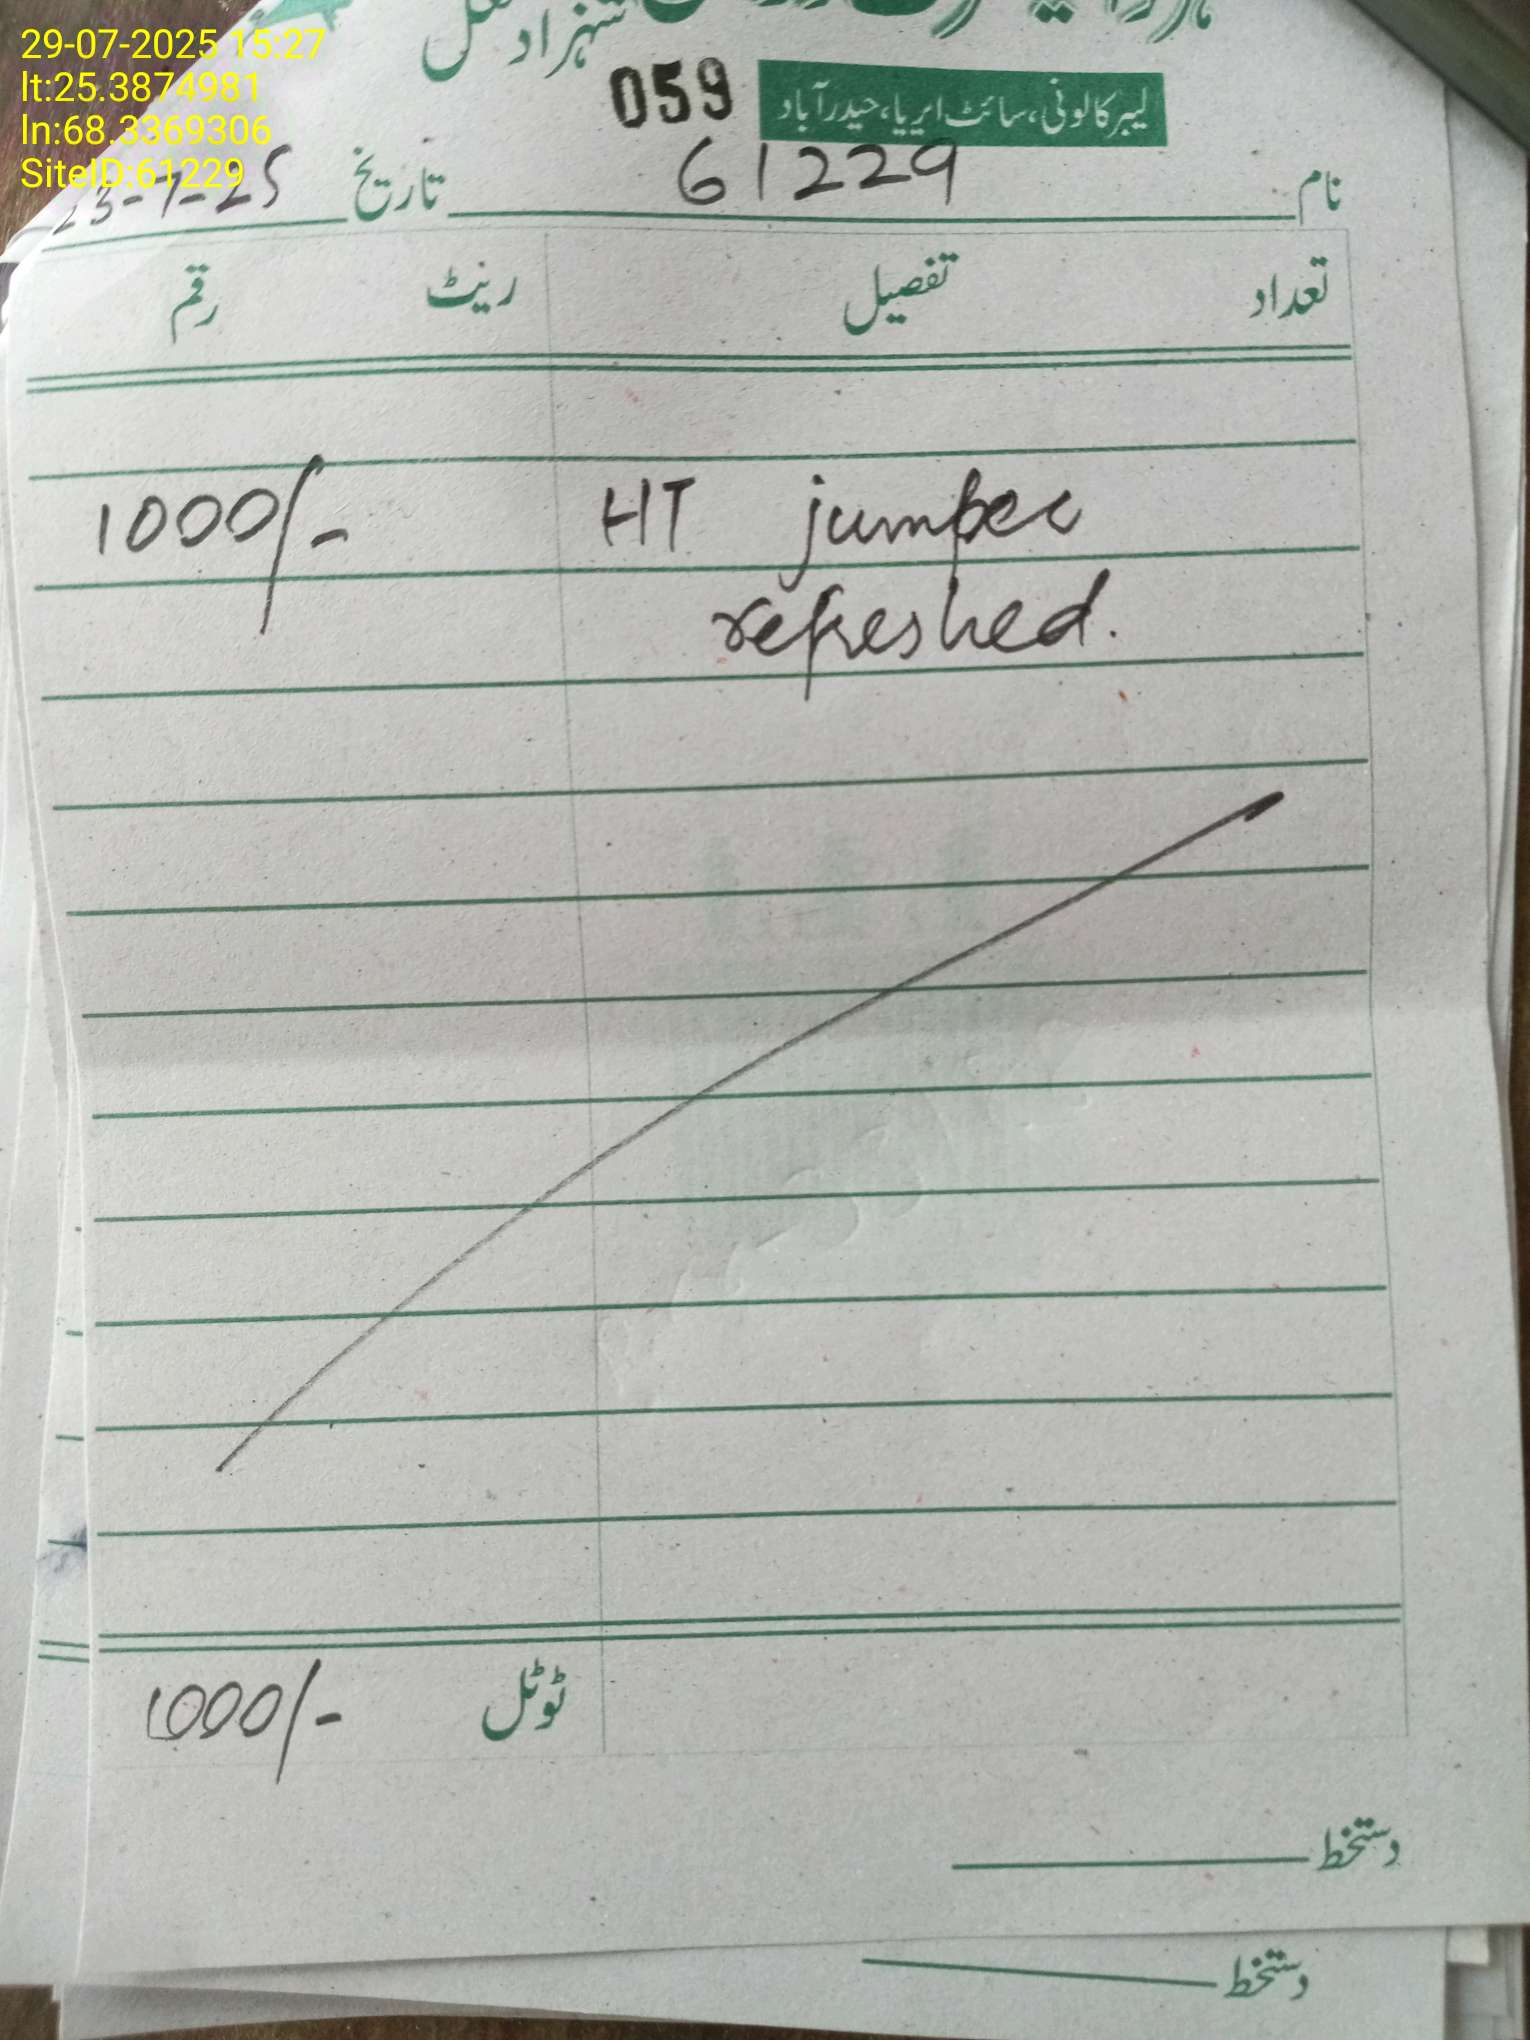 29-07-2025 15:27
lt:25.3874981
ln:68.3369306
SiteID:61229
شہزاد
059
لیبر کالونی، سائٹ ایریا، حیدرآباد
نام 61229 تاریخ 23-7-25
تعداد تفصیل ریٹ رقم
HT jumper 1000/-
refreshed.
ٹوٹل 1000/-
دستخط
دستخط